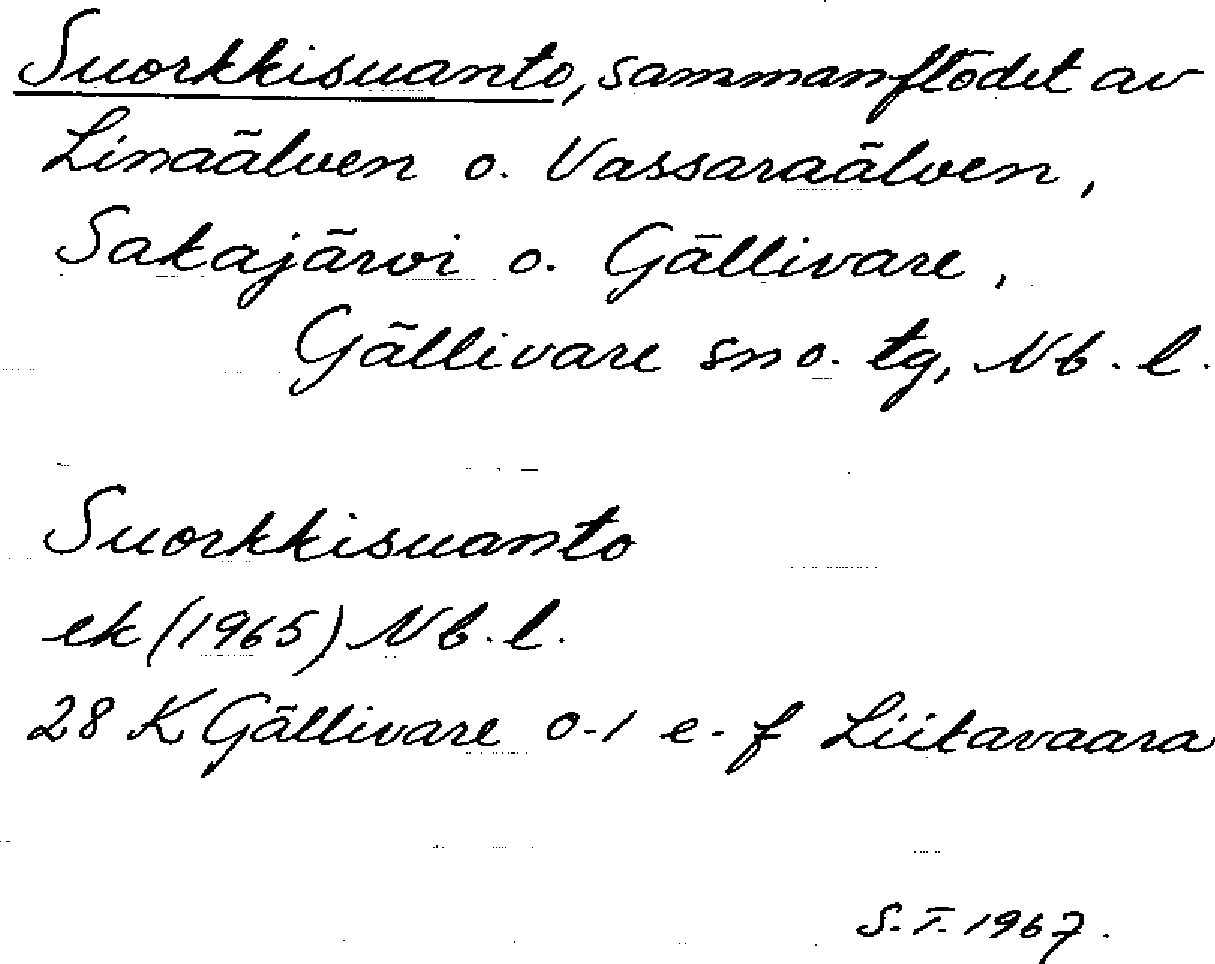 Suorkkisuanto, sammanflödet av
Linaälven o. Vassaraälven,
Sakajärvi o. Gällivare,
Gällivare sn o. tg, Nb. l.
Suorkkisuanto
ek (1965) Nb. l.
28 K Gällivare 0-1 e-f Liikavaara
S.T. 1967.